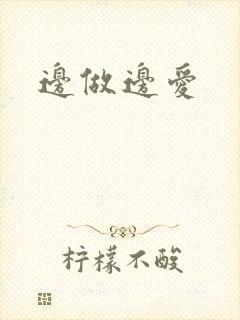 邊做邊愛
柠檬不酸